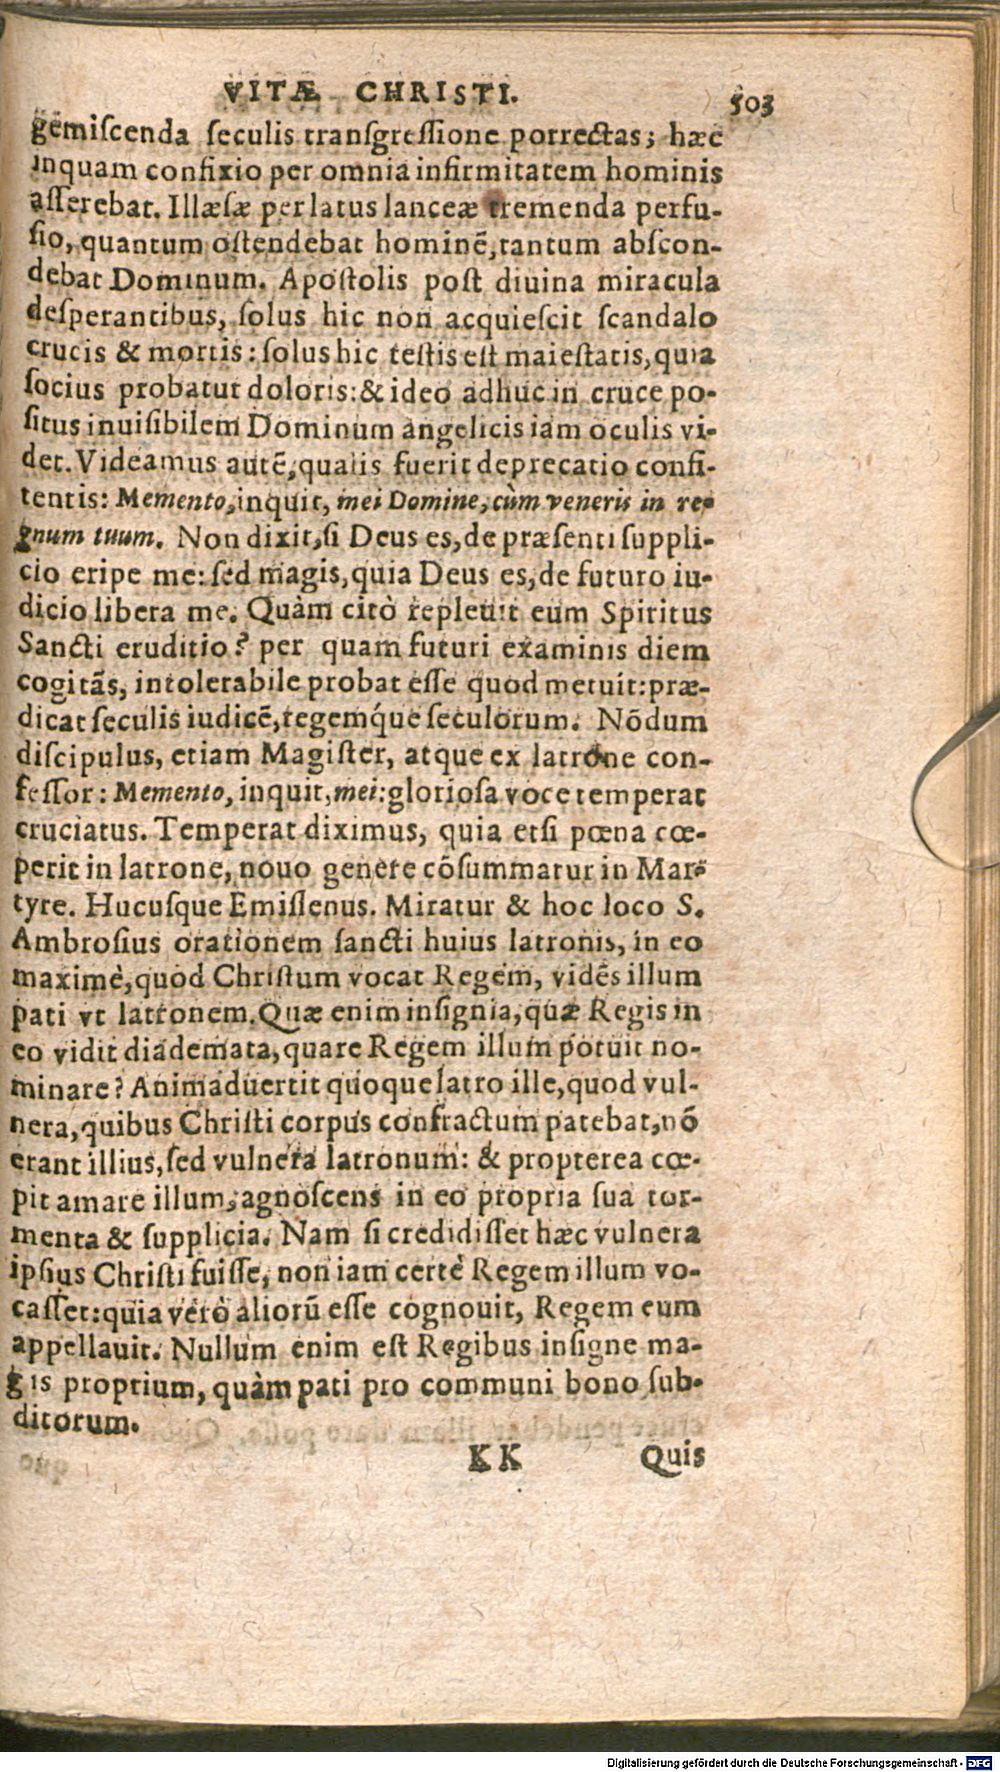 VITÆ CHRISTI. 503
gemiscenda seculis transgressione porrectas; hæc
inquam confixio per omnia infirmitatem hominis
asserebat. Illæsæ per latus lanceæ tremenda perfu-
sio, quantum ostendebat hominẽ, tantum abscon-
debat Dominum. Apostolis post diuina miracula
desperantibus, solus hic non acquiescit scandalo
crucis & mortis: solus hic testis est maiestatis, quia
socius probatur doloris: & ideo adhuc in cruce po-
situs inuisibilem Dominum angelicis iam oculis vi-
det. Videamus autẽ, qualis fuerit deprecatio confi-
tentis: Memento, inquit, mei Domine, cùm veneris in re-
gnum tuum. Non dixit, si Deus es, de præsenti suppli-
cio eripe me: sed magis, quia Deus es, de futuro iu-
dicio libera me. Quàm citò repleuit eum Spiritus
Sancti eruditio? per quam futuri examinis diem
cogitãs, intolerabile probat esse quod metuit: præ-
dicat seculis iudicẽ, regemq́ue seculorum. Nõdum
discipulus, etiam Magister, atque ex latrone con-
fessor: Memento, inquit, mei: gloriosa voce temperat
cruciatus. Temperat diximus, quia etsi pœna cœ-
perit in latrone, nouo genere cõsummatur in Mar-
tyre. Hucusque Emissenus. Miratur & hoc loco S.
Ambrosius orationem sancti huius latronis, in eo
maximè, quod Christum vocat Regem, vidẽs illum
pati vt latronem. Quæ enim insignia, quæ Regis in
eo vidit diademata, quare Regem illum potuit no-
minare? Animaduertit quoque latro ille, quod vul-
nera, quibus Christi corpus confractum patebat, nõ
erant illius, sed vulnera latronum: & propterea cœ-
pit amare illum, agnoscens in eo propria sua tor-
menta & supplicia. Nam si credidisset hæc vulnera
ipsius Christi fuisse, non iam certè Regem illum vo-
casset: quia verò aliorũ esse cognouit, Regem eum
appellauit. Nullum enim est Regibus insigne ma-
gis proprium, quàm pati pro communi bono sub-
ditorum.
KK Quis
Digitalisierung gefördert durch die Deutsche Forschungsgemeinschaft - DFG